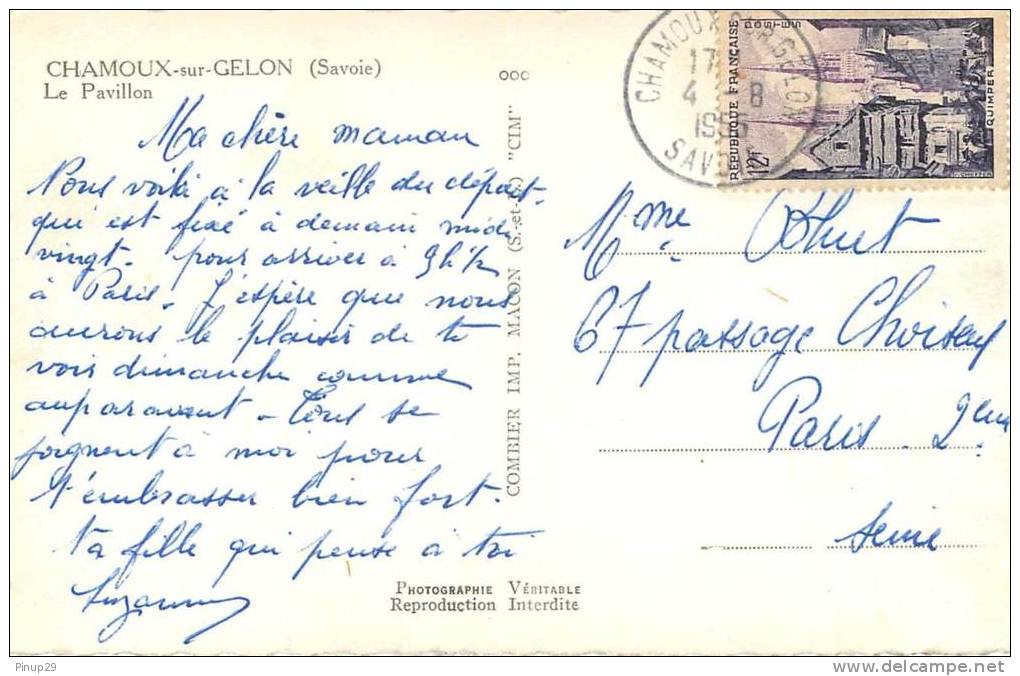 CHAMOUX-sur-GELON (Savoie)
Le Pavillon
Ma chère maman
Nous voilà à la veille du départ.
qui est fixé à demain midi
vingt. pour arriver à 9h½
à Paris. J'espère que nous
aurons le plaisir de te
voir dimanche comme
auparavant. Tous se
joignent à moi pour
t'embrasser bien fort.
ta fille qui pense à toi
Suzanne
ooo
COMBIER IMP. MACON (S.-et-L.) "CIM"
PHOTOGRAPHIE VÉRITABLE
Reproduction Interdite
CHAMOUX-SUR-GELON
17
4 8
1955
SAVOIE
POSTES
RÉPUBLIQUE FRANÇAISE
12F
QUIMPER
Mme
67 passage Choiseul
Paris. 2eme
Seine
Pinup29
delcampe.net